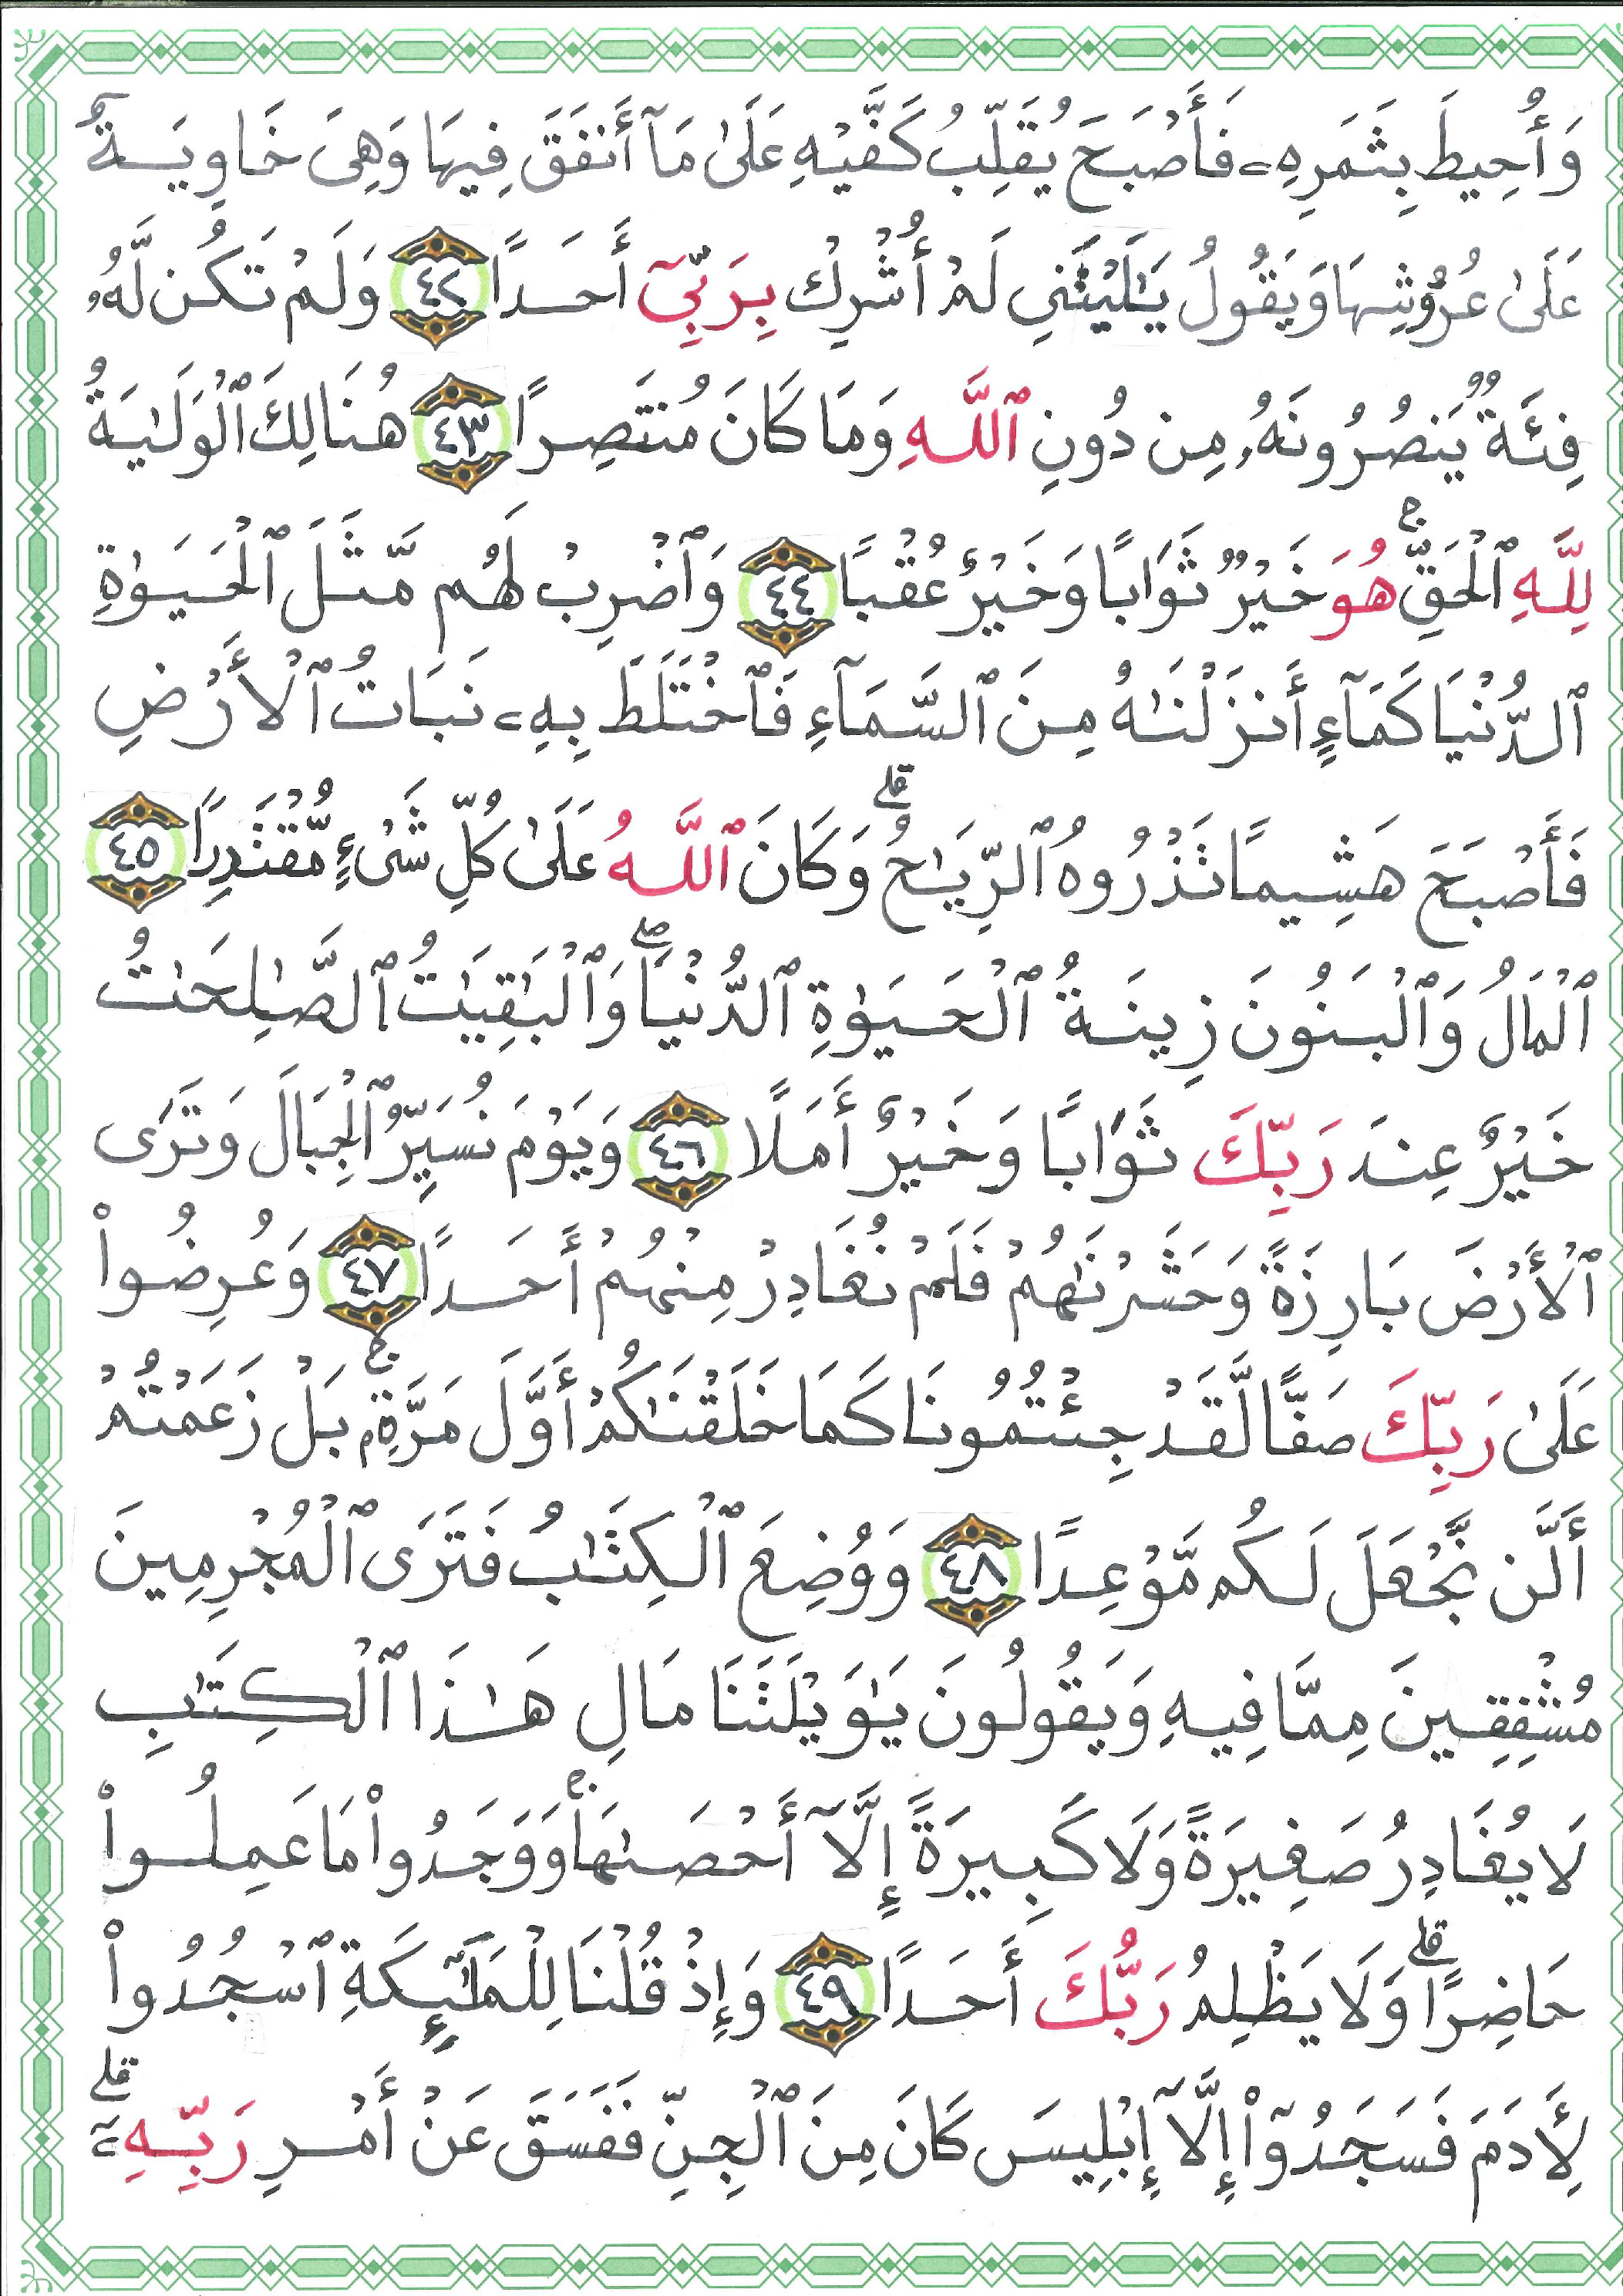 وَأُحِيطَ بِثَمَرِهِۦ فَأَصۡبَحَ يُقَلِّبُ كَفَّيۡهِ عَلَىٰ مَآ أَنفَقَ فِيهَا وَهِيَ خَاوِيَةٌ
عَلَىٰ عُرُوشِهَا وَيَقُولُ يَٰلَيۡتَنِي لَمۡ أُشۡرِكۡ بِرَبِّيٓ أَحَدٗا ٤٢ وَلَمۡ تَكُن لَّهُۥ
فِئَةٞ يَنصُرُونَهُۥ مِن دُونِ ٱللَّهِ وَمَا كَانَ مُنتَصِرًا ٤٣ هُنَالِكَ ٱلۡوَلَٰيَةُ
لِلَّهِ ٱلۡحَقِّۚ هُوَ خَيۡرٞ ثَوَابٗا وَخَيۡرٌ عُقۡبٗا ٤٤ وَٱضۡرِبۡ لَهُم مَّثَلَ ٱلۡحَيَوٰةِ
ٱلدُّنۡيَا كَمَآءٍ أَنزَلۡنَٰهُ مِنَ ٱلسَّمَآءِ فَٱخۡتَلَطَ بِهِۦ نَبَاتُ ٱلۡأَرۡضِ
فَأَصۡبَحَ هَشِيمٗا تَذۡرُوهُ ٱلرِّيَٰحُۗ وَكَانَ ٱللَّهُ عَلَىٰ كُلِّ شَيۡءٖ مُّقۡتَدِرًا ٤٥
ٱلۡمَالُ وَٱلۡبَنُونَ زِينَةُ ٱلۡحَيَوٰةِ ٱلدُّنۡيَاۖ وَٱلۡبَٰقِيَٰتُ ٱلصَّٰلِحَٰتُ
خَيۡرٌ عِندَ رَبِّكَ ثَوَابٗا وَخَيۡرٌ أَمَلٗا ٤٦ وَيَوۡمَ نُسَيِّرُ ٱلۡجِبَالَ وَتَرَى
ٱلۡأَرۡضَ بَارِزَةٗ وَحَشَرۡنَٰهُمۡ فَلَمۡ نُغَادِرۡ مِنۡهُمۡ أَحَدٗا ٤٧ وَعُرِضُواْ
عَلَىٰ رَبِّكَ صَفّٗا لَّقَدۡ جِئۡتُمُونَا كَمَا خَلَقۡنَٰكُمۡ أَوَّلَ مَرَّةِۭۚ بَلۡ زَعَمۡتُمۡ
أَلَّن نَّجۡعَلَ لَكُم مَّوۡعِدٗا ٤٨ وَوُضِعَ ٱلۡكِتَٰبُ فَتَرَى ٱلۡمُجۡرِمِينَ
مُشۡفِقِينَ مِمَّا فِيهِ وَيَقُولُونَ يَٰوَيۡلَتَنَا مَالِ هَٰذَا ٱلۡكِتَٰبِ
لَا يُغَادِرُ صَغِيرَةٗ وَلَا كَبِيرَةً إِلَّآ أَحۡصَىٰهَاۚ وَوَجَدُواْ مَا عَمِلُواْ
حَاضِرٗاۗ وَلَا يَظۡلِمُ رَبُّكَ أَحَدٗا ٤٩ وَإِذۡ قُلۡنَا لِلۡمَلَٰٓئِكَةِ ٱسۡجُدُواْ
لِأٓدَمَ فَسَجَدُوٓاْ إِلَّآ إِبۡلِيسَ كَانَ مِنَ ٱلۡجِنِّ فَفَسَقَ عَنۡ أَمۡرِ رَبِّهِۦٓۗ